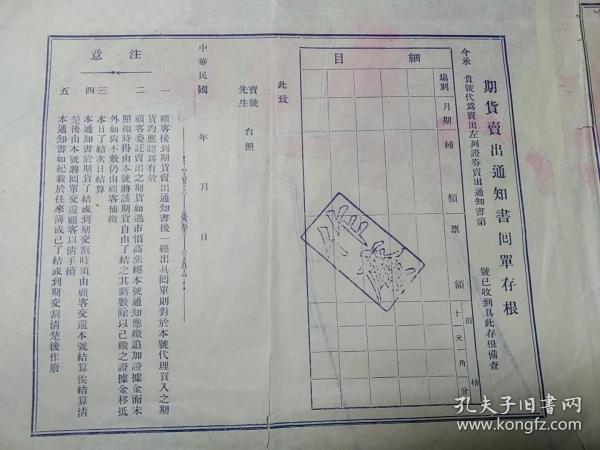 期貨賣出通知書回單存根
今承
貴號代爲賣出左列證券賣出通知書第　號已收到具此存根備查
細目
塲別
月期
種類
票額
價格
十一元一角分
此致
寶號
先生
台照
中華民國　年　月　日
注意
一　顧客接到期貨賣出通知書後一經出具回單則對於本號代理買入之期
貨均應認爲有效
二　顧客委託賣出之期貨如遇市價高漲經本號通知應繳追加證據金而未
照繳時得由本號將該期貨自由了結之其虧數除以已繳之證據金移抵
外如尚不敷仍由顧客補繳
三　本日了結次日結算
四　本通知書於期貨了結或到期交割時須由顧客交還本號結算俟結算清
楚後由本號將回單交還顧客以清手續
五　本通知書如祀載於往來薄或已了結或到期交割清楚後作廢
孔夫子旧书网
www.kongfz.com